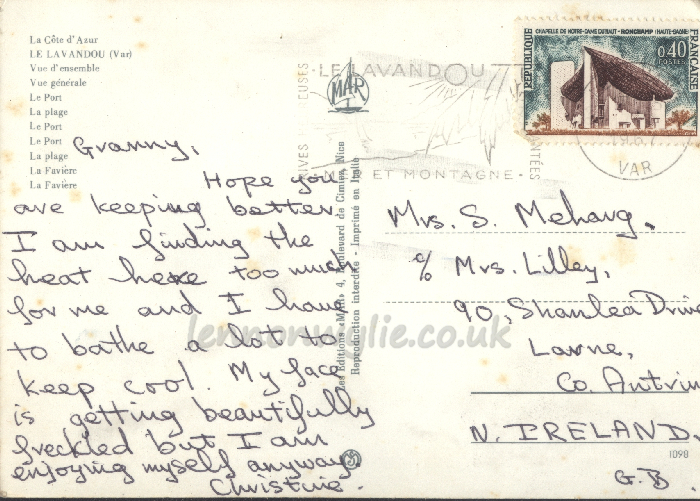 La Côte d'Azur
LE LAVANDOU (Var)
Vue d'ensemble
Vue générale
Le Port
La plage
Le Port
Le Port
La plage
La Favière
La Favière
Granny,
Hope you
are keeping better.
I am finding the
heat here too much
for me and I have
to bathe a lot to
keep cool. My face
is getting beautifully
freckled but I am
enjoying myself anyway.
Christine.
MAR
Les Editions «MAR» 4, Boulevard de Cimiez, Nice
Reproduction interdite - Imprimé en Italie
LE LAVANDOU
MER ET MONTAGNE
VAR
CHAPELLE DE NOTRE-DAME DU HAUT - RONCHAMP (HAUTE-SAONE)
REPUBLIQUE
FRANCAISE
0,40
POSTES
Mrs. S. Meharg,
c/o Mrs. Lilley,
90, Shanlea Drive
Larne,
Co. Antrim
N. IRELAND.
1098
G.B.
lennonwylie.co.uk